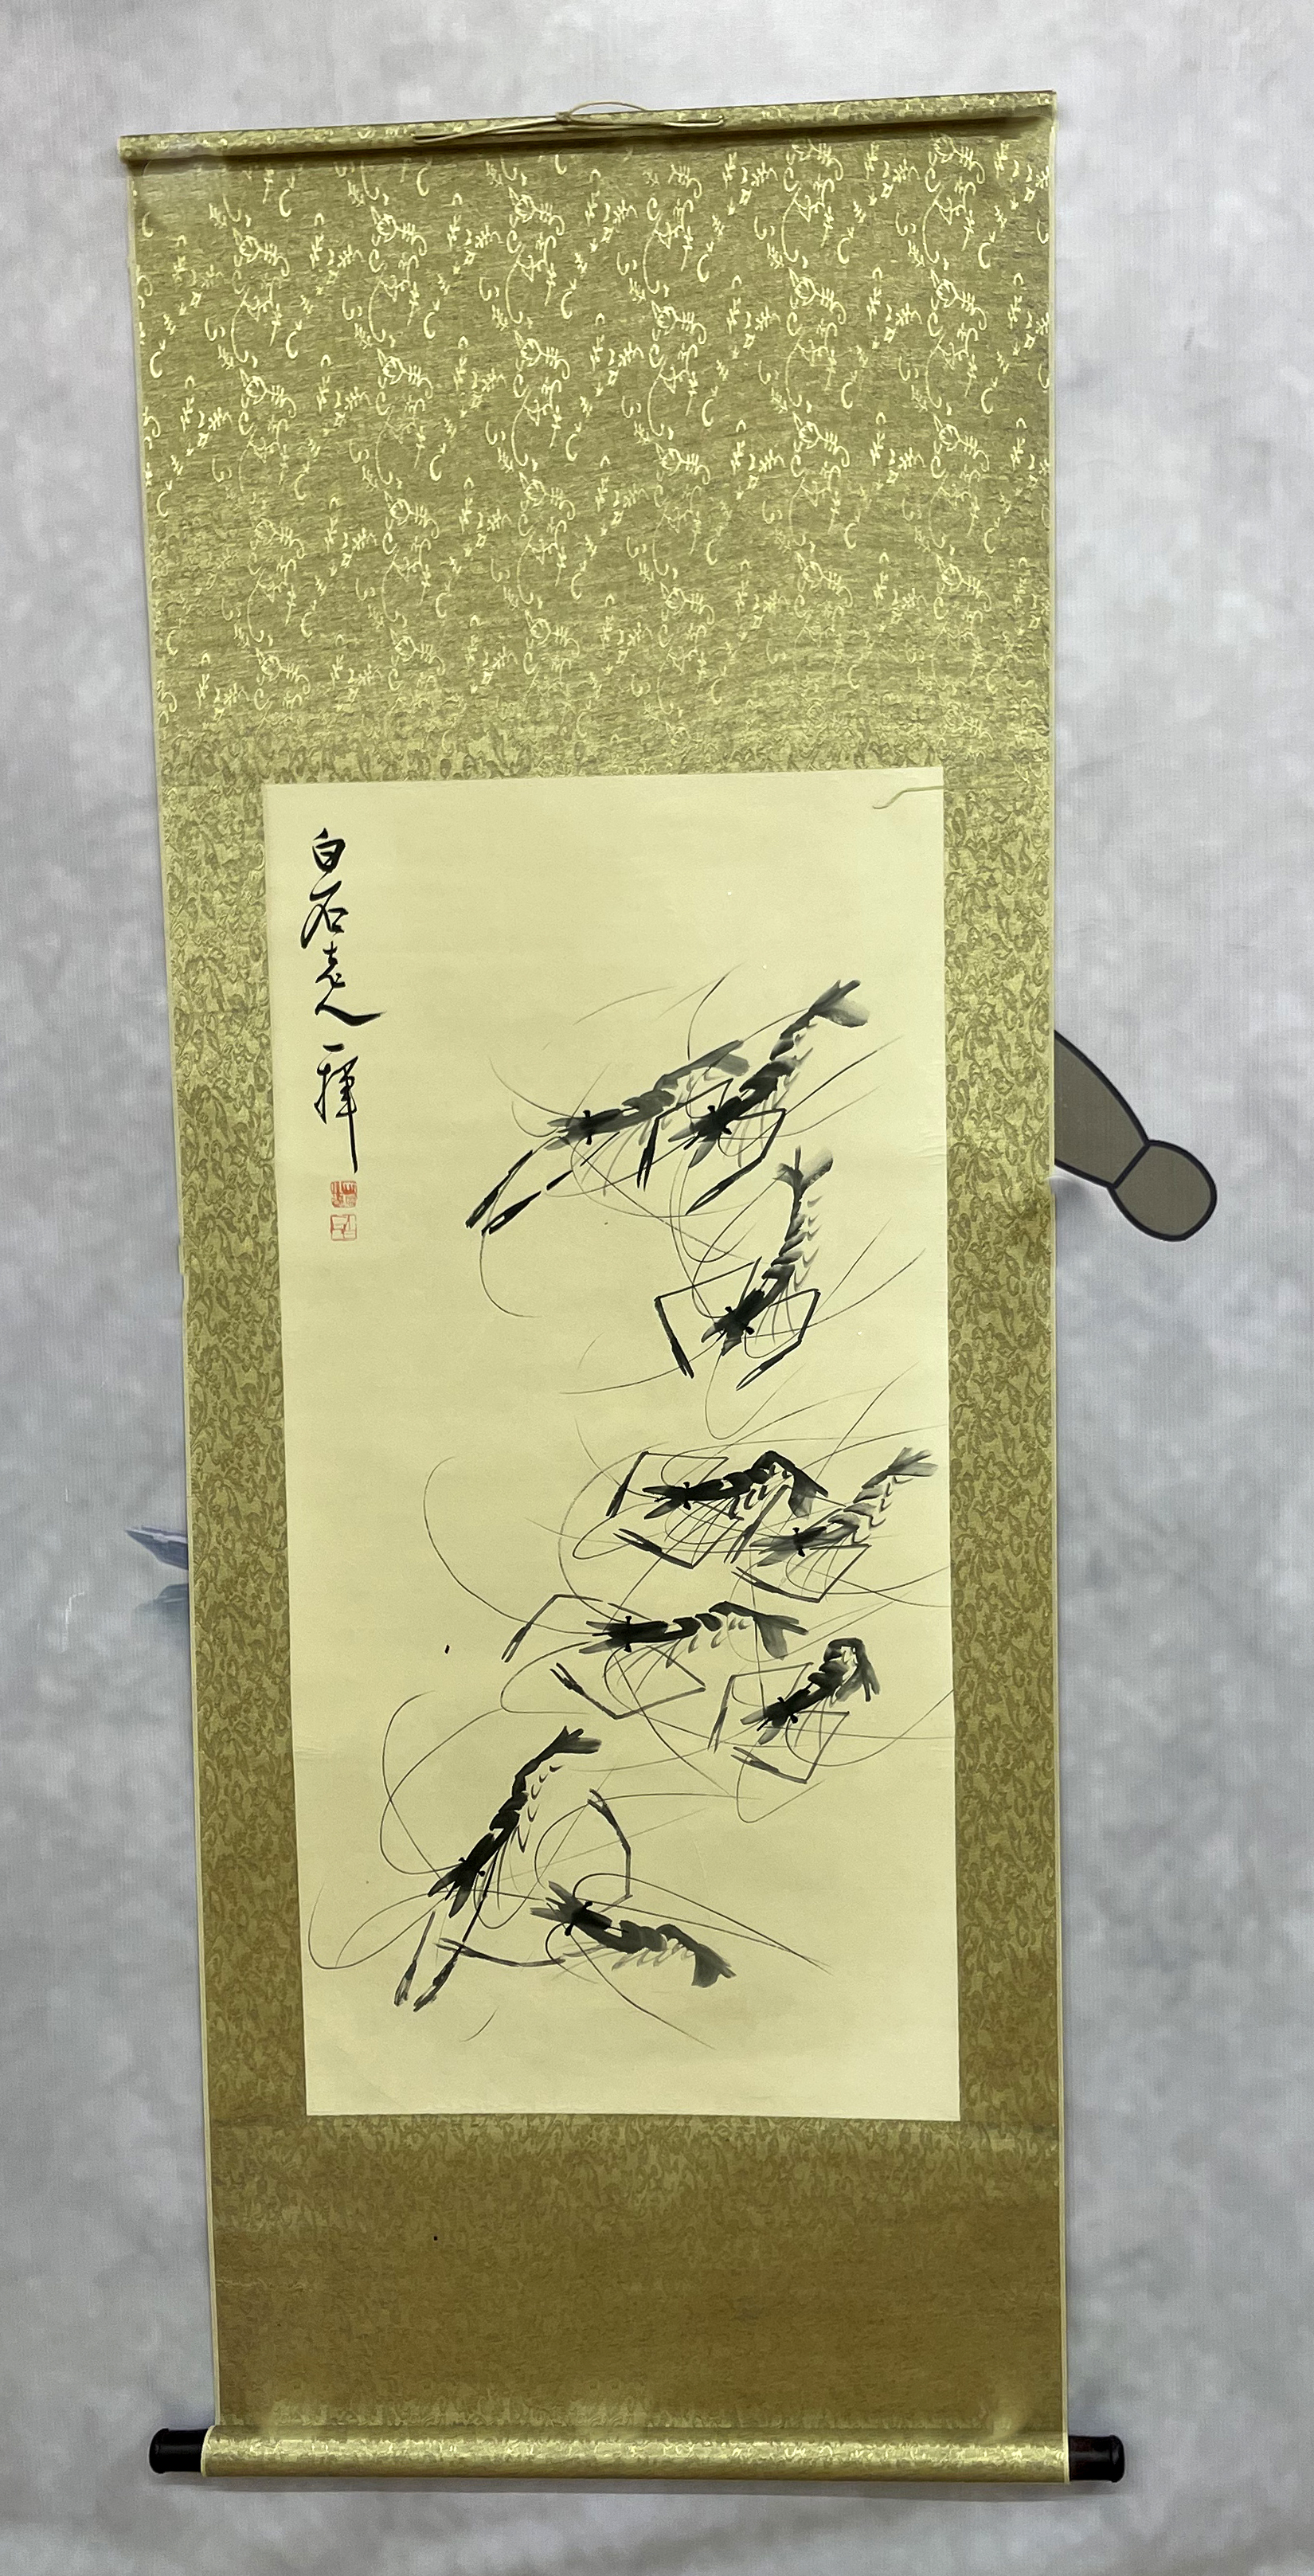 白石老人一挥